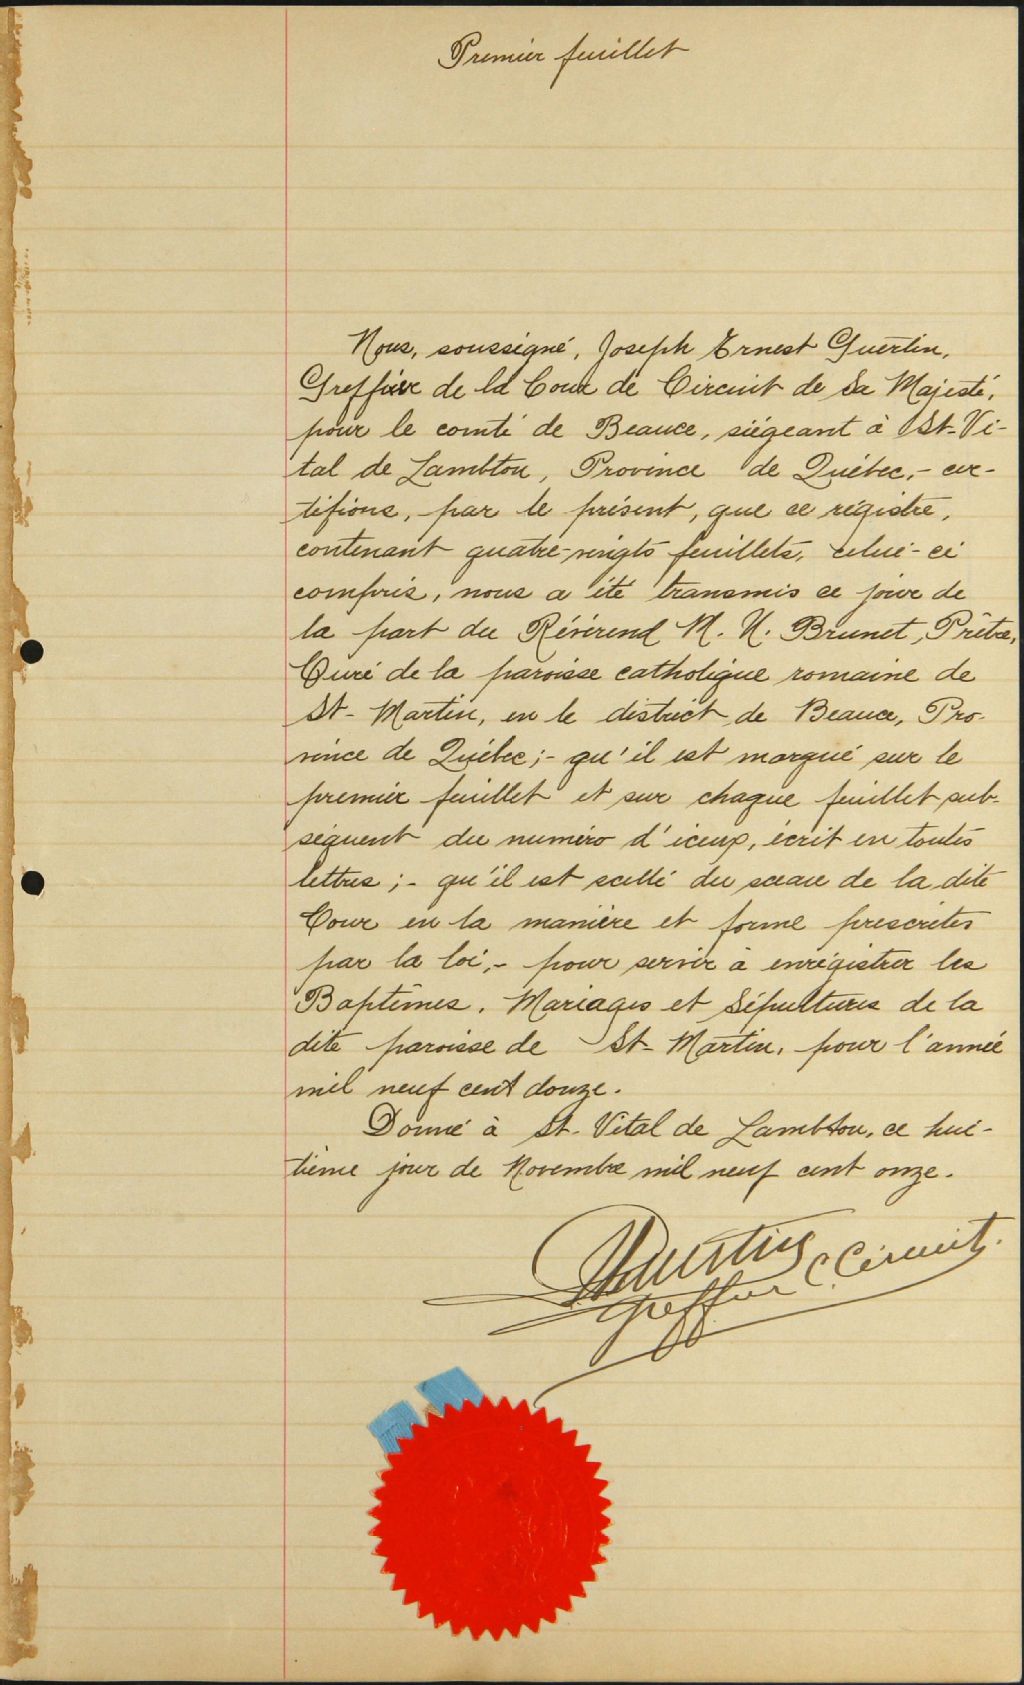 Premier feuillet
Nous, soussigné, Joseph Ernest Guertin,
Greffier de la Cour de Circuit de Sa Majesté,
pour le comté de Beauce, siégeant à St-Vi-
tal de Lambton, Province de Québec,- cer-
tifions, par le présent, que ce régistre,
contenant quatre-vingts feuillets, celui-ci
compris, nous a été transmis ce jour de
la part du Révérend M. N. Brunet, Prêtre,
Curé de la paroisse catholique romaine de
St-Martin, en le district de Beauce, Pro-
vince de Québec;- qu'il est marqué sur le
premier feuillet et sur chaque feuillet sub-
séquent du numéro d'iceux, écrit en toutes
lettres;- qu'il est scellé du sceau de la dite
Cour en la manière et forme prescrites
par la loi,- pour servir à enrégistrer les
Baptêmes, Mariages et Sépultures de la
dite paroisse de St-Martin, pour l'année
mil neuf cent douze.
Donné à St-Vital de Lambton, ce hui-
tième jour de Novembre mil neuf cent onze.
Guertin
Greffier C. Circuit.